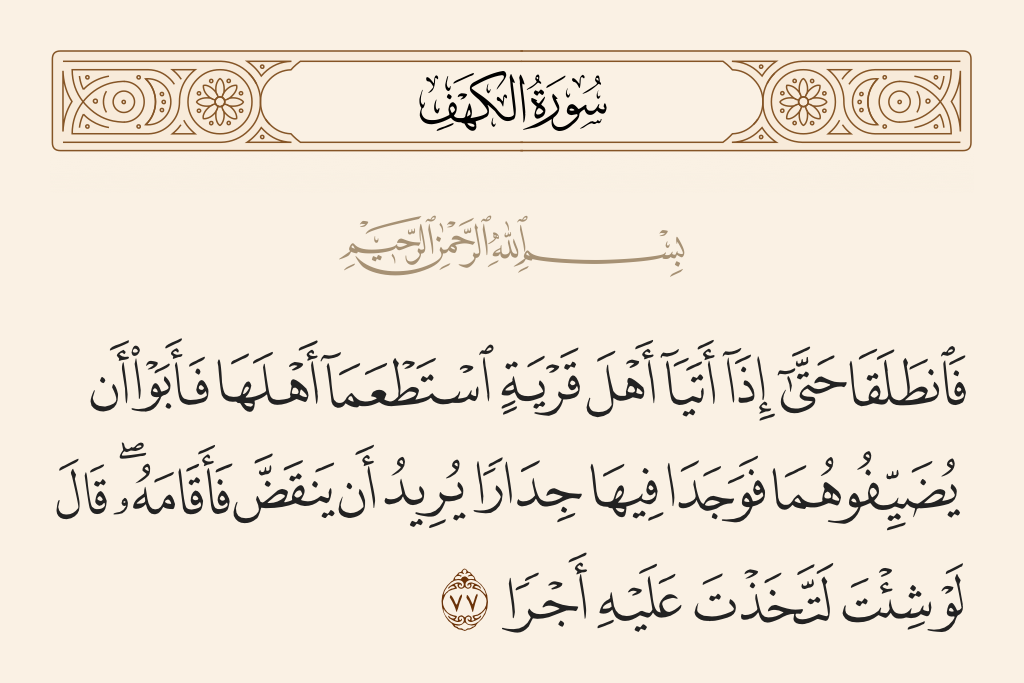 سُورَةُ الكَهْفِ
بِسْمِ ٱللَّهِ ٱلرَّحْمَٰنِ ٱلرَّحِيمِ
فَٱنطَلَقَا حَتَّىٰٓ إِذَآ أَتَيَآ أَهْلَ قَرْيَةٍ ٱسْتَطْعَمَآ أَهْلَهَا فَأَبَوْا۟ أَن
يُضَيِّفُوهُمَا فَوَجَدَا فِيهَا جِدَارًا يُرِيدُ أَن يَنقَضَّ فَأَقَامَهُۥ ۖ قَالَ
لَوْ شِئْتَ لَتَّخَذْتَ عَلَيْهِ أَجْرًا ٧٧